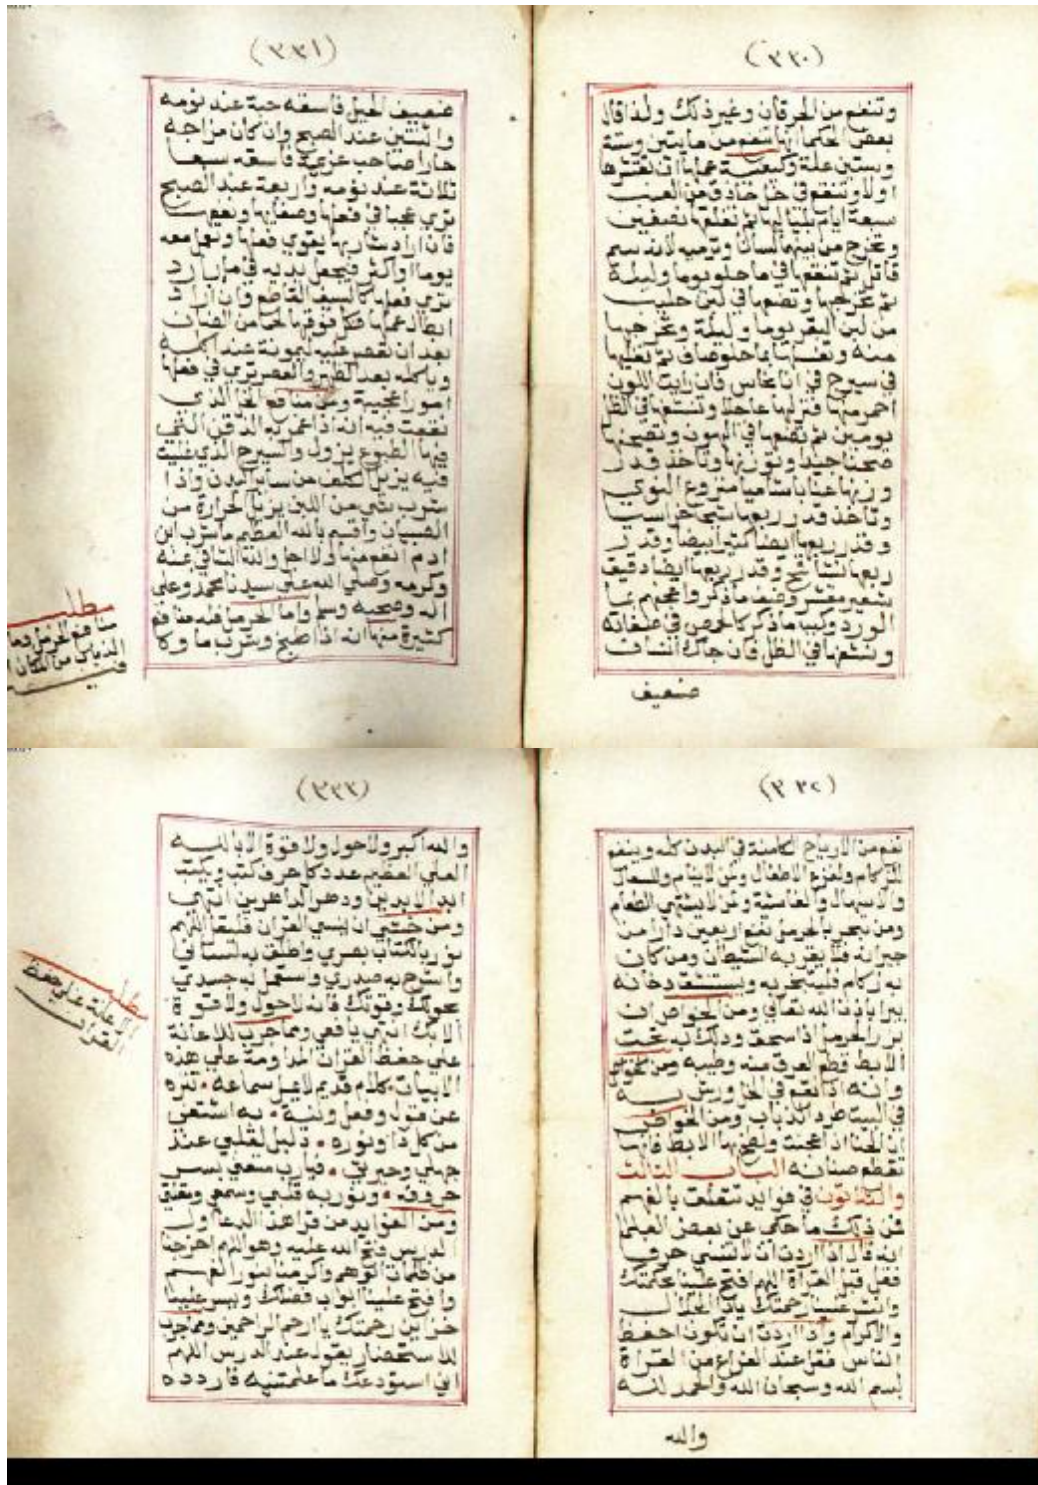 (٣٣٠)
وتنفع من الحرقان وغير ذلك ولذا قال
بعض الحكما انها تنفع من مايتين وستة
وستين علة وكيفية عملها ان تقشرها
اولا وتنقع في خل حاذق من العنب
سبعة ايام بلياليها ثم تفلقها نصفين
وتخرج من بينهما لسان وترميه لانه سم
قاتل ثم تنقعها في ما حلو يوما وليلة
ثم تخرجها وتضعها في لبن حليب
من لبن البقر يوما وليلة وتخرجها
منه وتغسلها بما حلو صاف ثم تغليها
في سيرج في انا نحاس فان رايت اللون
احمر منها فنزلها عاجلا وتنشفها في الظل
يومين ثم تضعها في الهون وتصحنها
صحنا جيدا وتوزنها وتاخذ قدر
وزنها عنابا شاميا منزوع النوى
وتاخذ قدر ربعها
وقدر ربعها ايضا كثيرا بيضا وقدر
ربعها نشا وقدر ربعها ايضا دقيق
شعير مقشر وضف ما ذكر واعجنهم بما
الورد وكببه ما ذكر كالحمص في
ونشفها في الظل فان جاك انسان
ضعيف
(٣٣١)
ضعيف الحيل فاسقه حبة عند نومه
واثنتين عند الصبح وان كان مزاجه
حارا صاحب عزمة فاسقه سبعا
ثلاثة عند نومه واربعة عند الصبح
ترى عجبا في فعلها وصفايها ونفعها
فان اراد شاربها يقوي فعلها وتعمل معه
يوما او اكثر فيجعل يديه في ما بارد
ترى فعلها كالسيف القاطع وان اراد
ابطال عملها فكل فوقها لحما من الضان
بعد ان تعصر عليه ليمونة عند اكله
وياكله بعد الظهر والعصر ترى في فعلها
امورا عجيبة ومن منافع الخل الذي
نقعت فيه انه اذا غمر به الذقن التي
فيها الطبوع يزول والسيرج الذي غليت
فيه يزيل الكلف من ساير البدن واذا
شرب شي من اللبن يزيل الحرارة من
الصبيان واقسم بالله العظيم ما شرب ابن
ادم انفع منها ولا اجل والله الشافي بمنه
وكرمه وصلى الله على سيدنا محمد وعلى
اله وصحبه وسلم واما الحرمل فله منافع
كثيرة منها انه اذا طبخ وشرب ماوه كا
مطلب
منافع الحرمل
الذباب من المكان
(٣٣٢)
نفع من الارياح الكامنة في البدن كله وينفع
للزكام ولفزع الاطفال ومن لا ينام وللسعال
والاسهال والغاشية ومن لا يشتهي الطعام
ومن يبخر بالحرمل نفع اربعين دارا من
جيرانه فلا يقربه الشيطان ومن كان
به زكام فليتبخر به ويستنشق دخانه
يبرا باذن الله تعالى ومن الخواص ان
بزر الحرمل اذا سحق ودلك به تحت
الابط قطع العرق منه وطيبه ومن الخواص
وانه اذا نقع في الخل ورش به
في البيت طرد الذباب ومن الخواص
ان الحنا اذا عجنت ولطخ بها الابط فانها
تقطع صنانه الباب الثالث
والثلاثون في فوايد تتعلق بالفهم
فمن ذلك ما حكي عن بعض العلما
انه قال اذا اردت ان لا تنسى حرفا
فقل قبل القراة اللهم افتح علينا حكمتك
وانشر علينا رحمتك ياذا الجلال
والاكرام واذا اردت ان تكون احفظ
الناس فقل عند الفراغ من القراة
بسم الله وسبحان الله والحمد لله
والله
(٣٣٣)
والله اكبر ولا حول ولا قوة الا بالله
العلي العظيم عدد كل حرف كتب ويكتب
ابد الابدين ودهر الداهرين انتهى
ومن خشي ان ينسى القران فليقل اللهم
نور بالكتاب بصري واطلق به لساني
واشرح به صدري واستعمل به جسدي
بحولك وقوتك فانه لا حول ولا قوة
الا بك انتهى يافعي ومما جرب للاعانة
على حفظ القران المداومة على هذه
الابيات كلام قديم لا يمل سماعه • تنزه
عن قول وفعل ونية • به اشتفي
من كل دا ونوره • دليل لقلبي عند
جهلي وحيرتي • فيا رب متعني بسر
حروفه • ونور به قلبي وسمعي ومقلتي
ومن الفوايد من قرا هذا الدعا اول
الدرس فتح الله عليه وهو اللهم اخرجنا
من ظلمات الوهم واكرمنا بنور الفهم
وافتح علينا ابواب فضلك ويسر علينا
خزاين رحمتك يا ارحم الراحمين ومما جرب
للاستحضار يقول عند الدرس اللهم
اني استودعك ما علمتنيه فاردده
مطلب
الاعانة على حفظ
القران